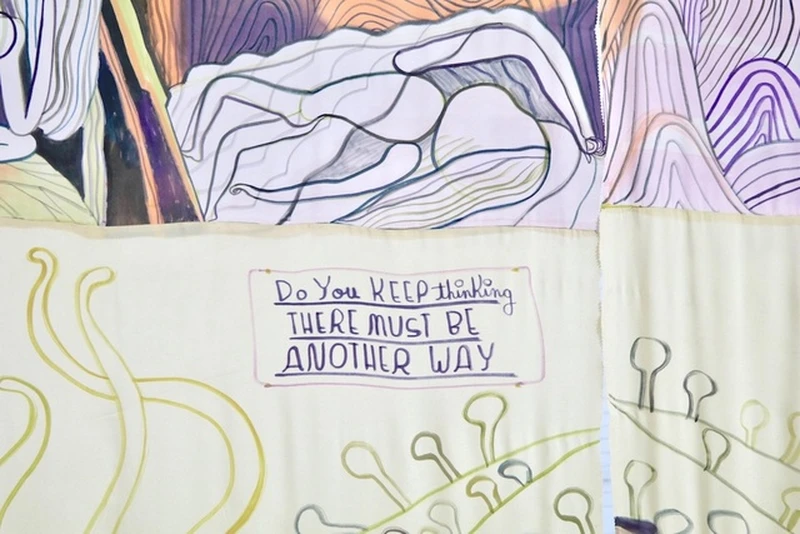 Do You KEEP thinking
THERE MUST BE
ANOTHER WAY